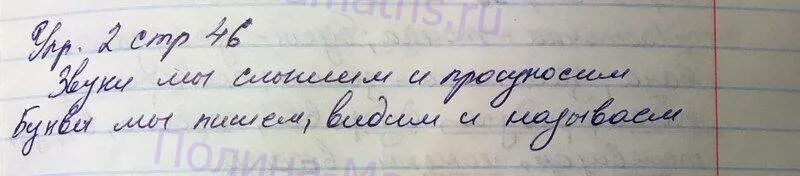 Упр. 2 стр 46
Звуки мы слышим и произносим
Буквы мы пишем, видим и называем